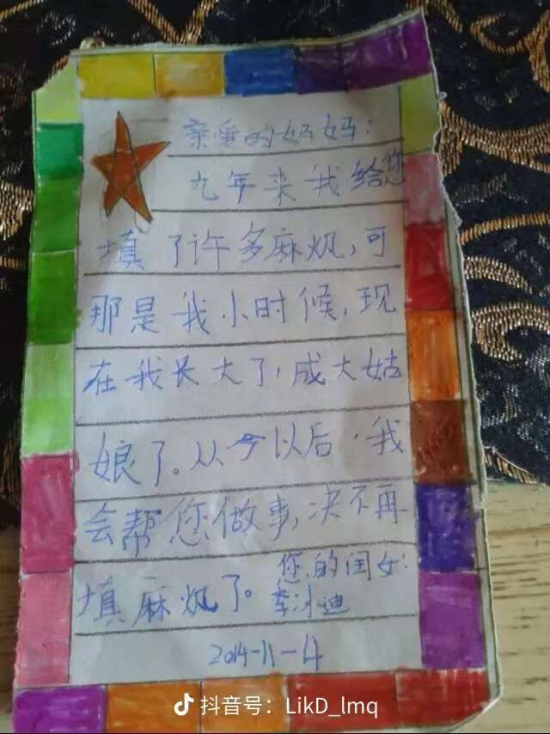 亲爱的妈妈：
九年来我给您
填了许多麻烦，可
那是我小时候，现
在我长大了，成大姑
娘了。从今以后，我
会帮您做事，决不再
填麻烦了。
您的闺女：
李
迪
2014-11-4
抖音号：LikD_lmq